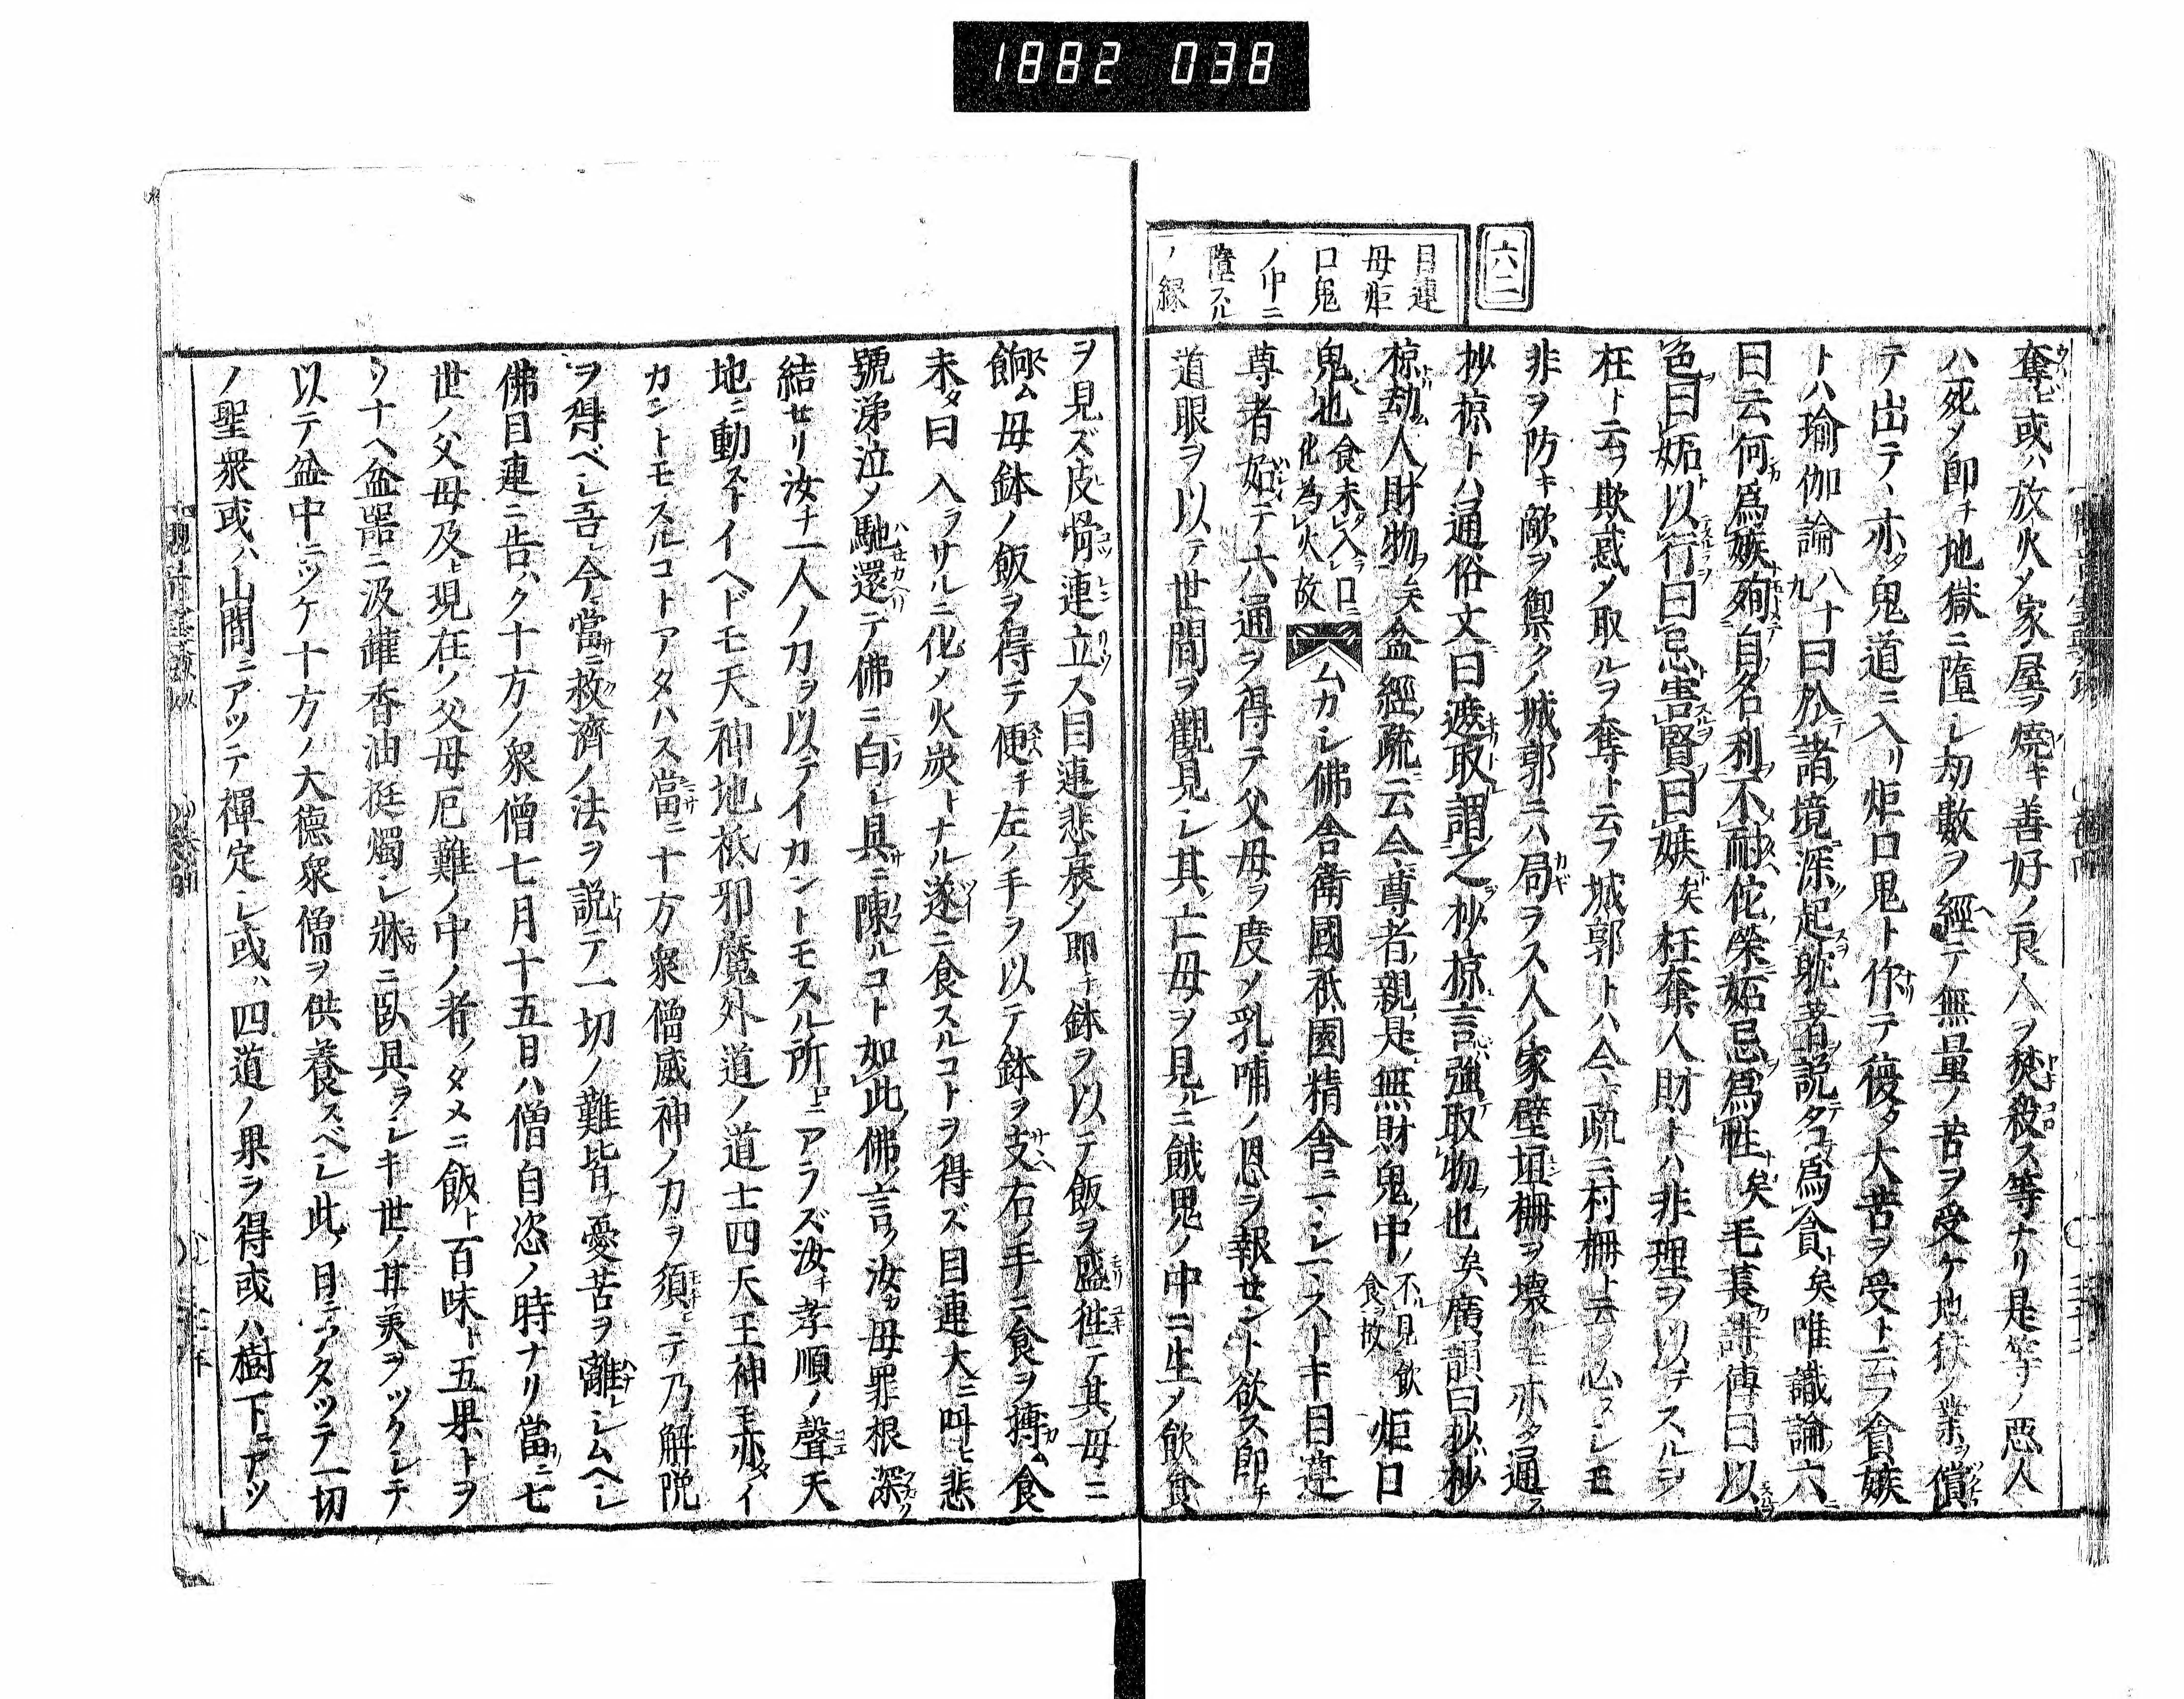 1882 038
六二
目連
母炬
口鬼
ノ中ニ
墮スル
ノ縁
奪ヒ或ハ放火メ家ノ屋ヲ焼キ善好ノ良人ヲ焚殺ス等ナリ是等ノ悪人
ハ死メ卽チ地獄ニ墮シ劫數ヲ經テ無量ノ苦ヲ受ケ地獄ノ業ヲ償
テ出テ丶亦タ鬼道ニ入リ炬口鬼ト作テ復タ大苦ヲ受ト云フ貪嫉
トハ瑜伽論八十九曰於諸境深起躭著說タヲ爲貪ト矣唯識論六ニ
曰云何爲嫉殉自名利不耐佗榮妬忌爲性ト矣毛萇詩傳曰以
色曰妬以行曰忌害賢曰嫉矣枉奪人財トハ非理ヲ以テスルヲ
枉ト云ヲ欺惑メ取ルヲ奪ト云フ城郭トハ今疏ニ村柵ト云フ必スシモ
非ヲ防キ敵ヲ禦クノ城郭ニハ局ラス人ノ家壁垣柵ヲ壊モ亦タ通ス
抄掠トハ通俗文曰遮取謂之抄掠言強取物也矣廣韻曰抄抄
掠劫人財物矣盆經疏云今尊者親是無財鬼中不見飲食故炬口
鬼也食未入口化為火故ムカシ佛舎衛國祇園精舎ニ丶シ丶ストキ目連
尊者始テ六通ヲ得テ父母ヲ度メ乳哺ノ恩ヲ報セント欲ス卽チ
道眼ヲ以テ世間ヲ觀見シ其亡母ヲ見ルニ餓鬼ノ中ニ生メ飮食
ヲ見ズ皮骨連立ス目連悲哀メ卽チ鉢ヲ以テ飯ヲ盛往テ其母ニ
餉ム母鉢ノ飯ヲ得テ便チ左ノ手ヲ以テ鉢ヲ支右ノ手ニ食ヲ摶ム食
未タ口入ラサルニ化メ火炭トナル遂ニ食スルコトヲ得ズ目連大ニ叫ヒ悲
號涕泣メ馳還テ佛ニ白シ具ニ陳ルコト如此佛ノ言ク汝カ母罪根深
結セリ汝チ一人ノ力ヲ以テイカントモスル所ニアラズ汝チ孝順ノ聲天
地ニ動ストイヘドモ天神地祇邪魔外道ノ道士四天王神モ亦タイ
カントモスルコトアタハス當ニ十方衆僧威神ノ力ヲ須ヒテ乃解脱
ヲ得ベシ吾レ今當ニ救濟ノ法ヲ説テ一切ノ難皆ナ憂苦ヲ離レシムヘシ
佛目連ニ告ハク十方ノ衆僧七月十五日ハ僧自恣ノ時ナリ當ニ七
世ノ父母及ヒ現在ノ父母厄難ノ中ノ者ノタメニ飯ト百味ト五果トヲ
ソナヘ盆器ニ汲鑵香油挺燭シ牀ニ臥具ヲシキ世ノ甘美ヲツクシテ
以テ盆中ニツケ十方ノ大德衆僧ヲ供養スベシ此ノ日ニアタツテ一切
ノ聖衆或ハ山間ニアツテ禪定シ或ハ四道ノ果ヲ得或ハ樹下ニアツ